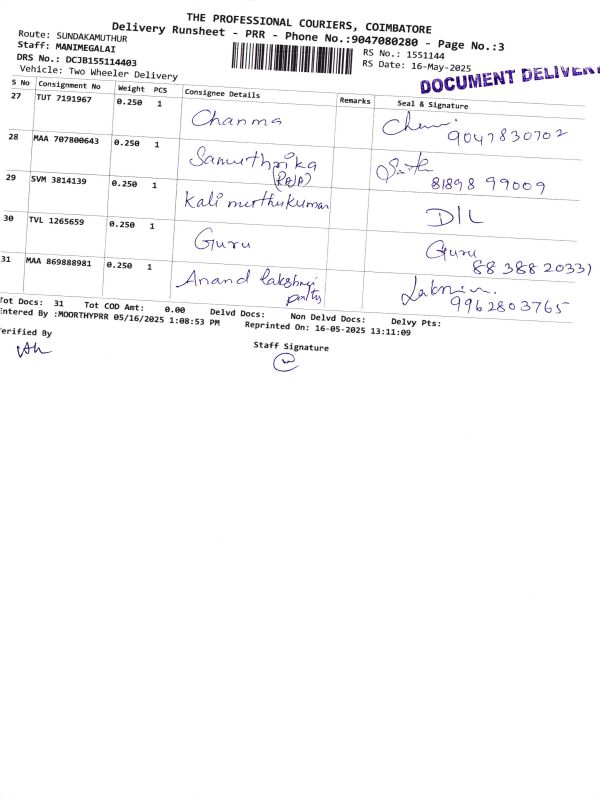 THE PROFESSIONAL COURIERS, COIMBATORE
Delivery Runsheet - PRR - Phone No.:9047080280 - Page No.:3
Route: SUNDAKAMUTHUR
RS No.: 1551144
Staff: MANIMEGALAI
RS Date: 16-May-2025
DRS No.: DCJB155114403
Vehicle: Two Wheeler Delivery
DOCUMENT DELIVERY
S No Consignment No Weight PCS Consignee Details Remarks Seal & Signature
27 TUT 7191967 0.250 1 Chanma
9047830702
28 MAA 707800643 0.250 1 Samuthrika
(RAJA)
81898 99009
29 SVM 3814139 0.250 1 Kali muthukumar D/L
30 TVL 1265659 0.250 1 Guru Guru
88 388 20331
31 MAA 869888981 0.250 1 Anand lakshmi
9962803765
Tot Docs: 31 Tot COD Amt: 0.00 Delvd Docs: Non Delvd Docs: Delvy Pts:
ntered By :MOORTHYPRR 05/16/2025 1:08:53 PM Reprinted On: 16-05-2025 13:11:09
erified By
Staff Signature